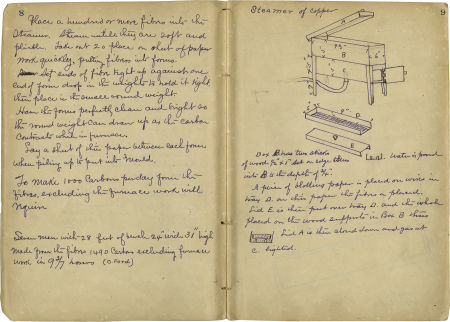 8
Place a hundred or more fibres into the
Steamer. Steam until they are soft and
pliable. Take out 20 place on sheet of paper
work quickly, putting fibres into forms.
Set ends of fibre tight up against one
end of form drop in the weights to hold it tight
then place in the small round weight.
Have the forms perfectly clean and bright so
the round weight can draw up as the carbon
contracts while in furnace.
Lay a sheet of thin paper between each form
when piling up to put into mould.
To make 1000 Carbons per day from the
fibre, excluding the furnace work will
require
Seven men with 28 feet of bench 26" wide 31" high
made from the fibre 1490 Carbons excluding furnace
work in 9 hours
9
Steamer of Copper
A
B
C
D
E
D or B has two sticks
of wood set on edge then
Water is poured
into B to the depth of
A piece of blotting paper is placed on wire in
tray D. on this paper the fibre is placed.
Lid E is then put over tray D. and the whole
placed on the wood supports in Box B thus
Lid A is then closed down and gas at
C. lighted.